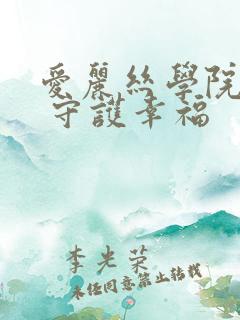 愛麗絲學院
守護幸福
李光荣
未经同意禁止转载